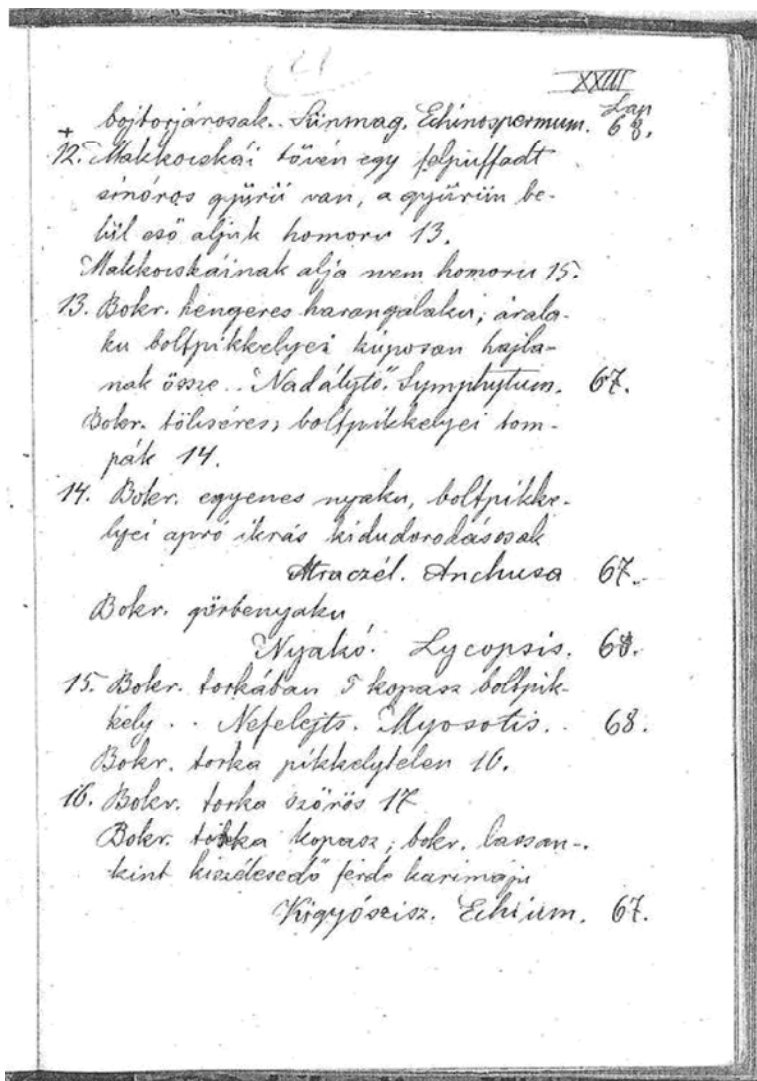 XXIII
Lap
bojtorjánosak.. Sünmag. Echinospermum. 68.
+
12. Makkocskái tövén egy felpuffadt
sinóros gyűrű van, a gyűrűn be-
lül eső aljuk homoru 13.
Makkocskáinak alja nem homoru 15.
13. Bokr. hengeres harangalaku; árala-
ku boltpikkelyei kúposan hajla-
nak össze.. Nadálytő. Symphytum. 67.
Bokr. tölcséres, boltpikkelyei tom-
pák 14.
14. Bokr. egyenes nyaku, boltpikke-
lyei apró ikrás kidudorodásosak
Atraczél. Anchusa 67.
Bokr. görbenyaku
Nyakó. Lycopsis. 68.
15. Bokr. torkában 5 kopasz boltpik-
kely.. Nefelejts. Myosotis.. 68.
Bokr. torka pikkelytelen 16.
16. Bokr. torka szőrös 17
Bokr. torka kopasz; bokr. lassan-
kint kiszélesedő ferde karimáju
Kigyószisz. Echium. 67.